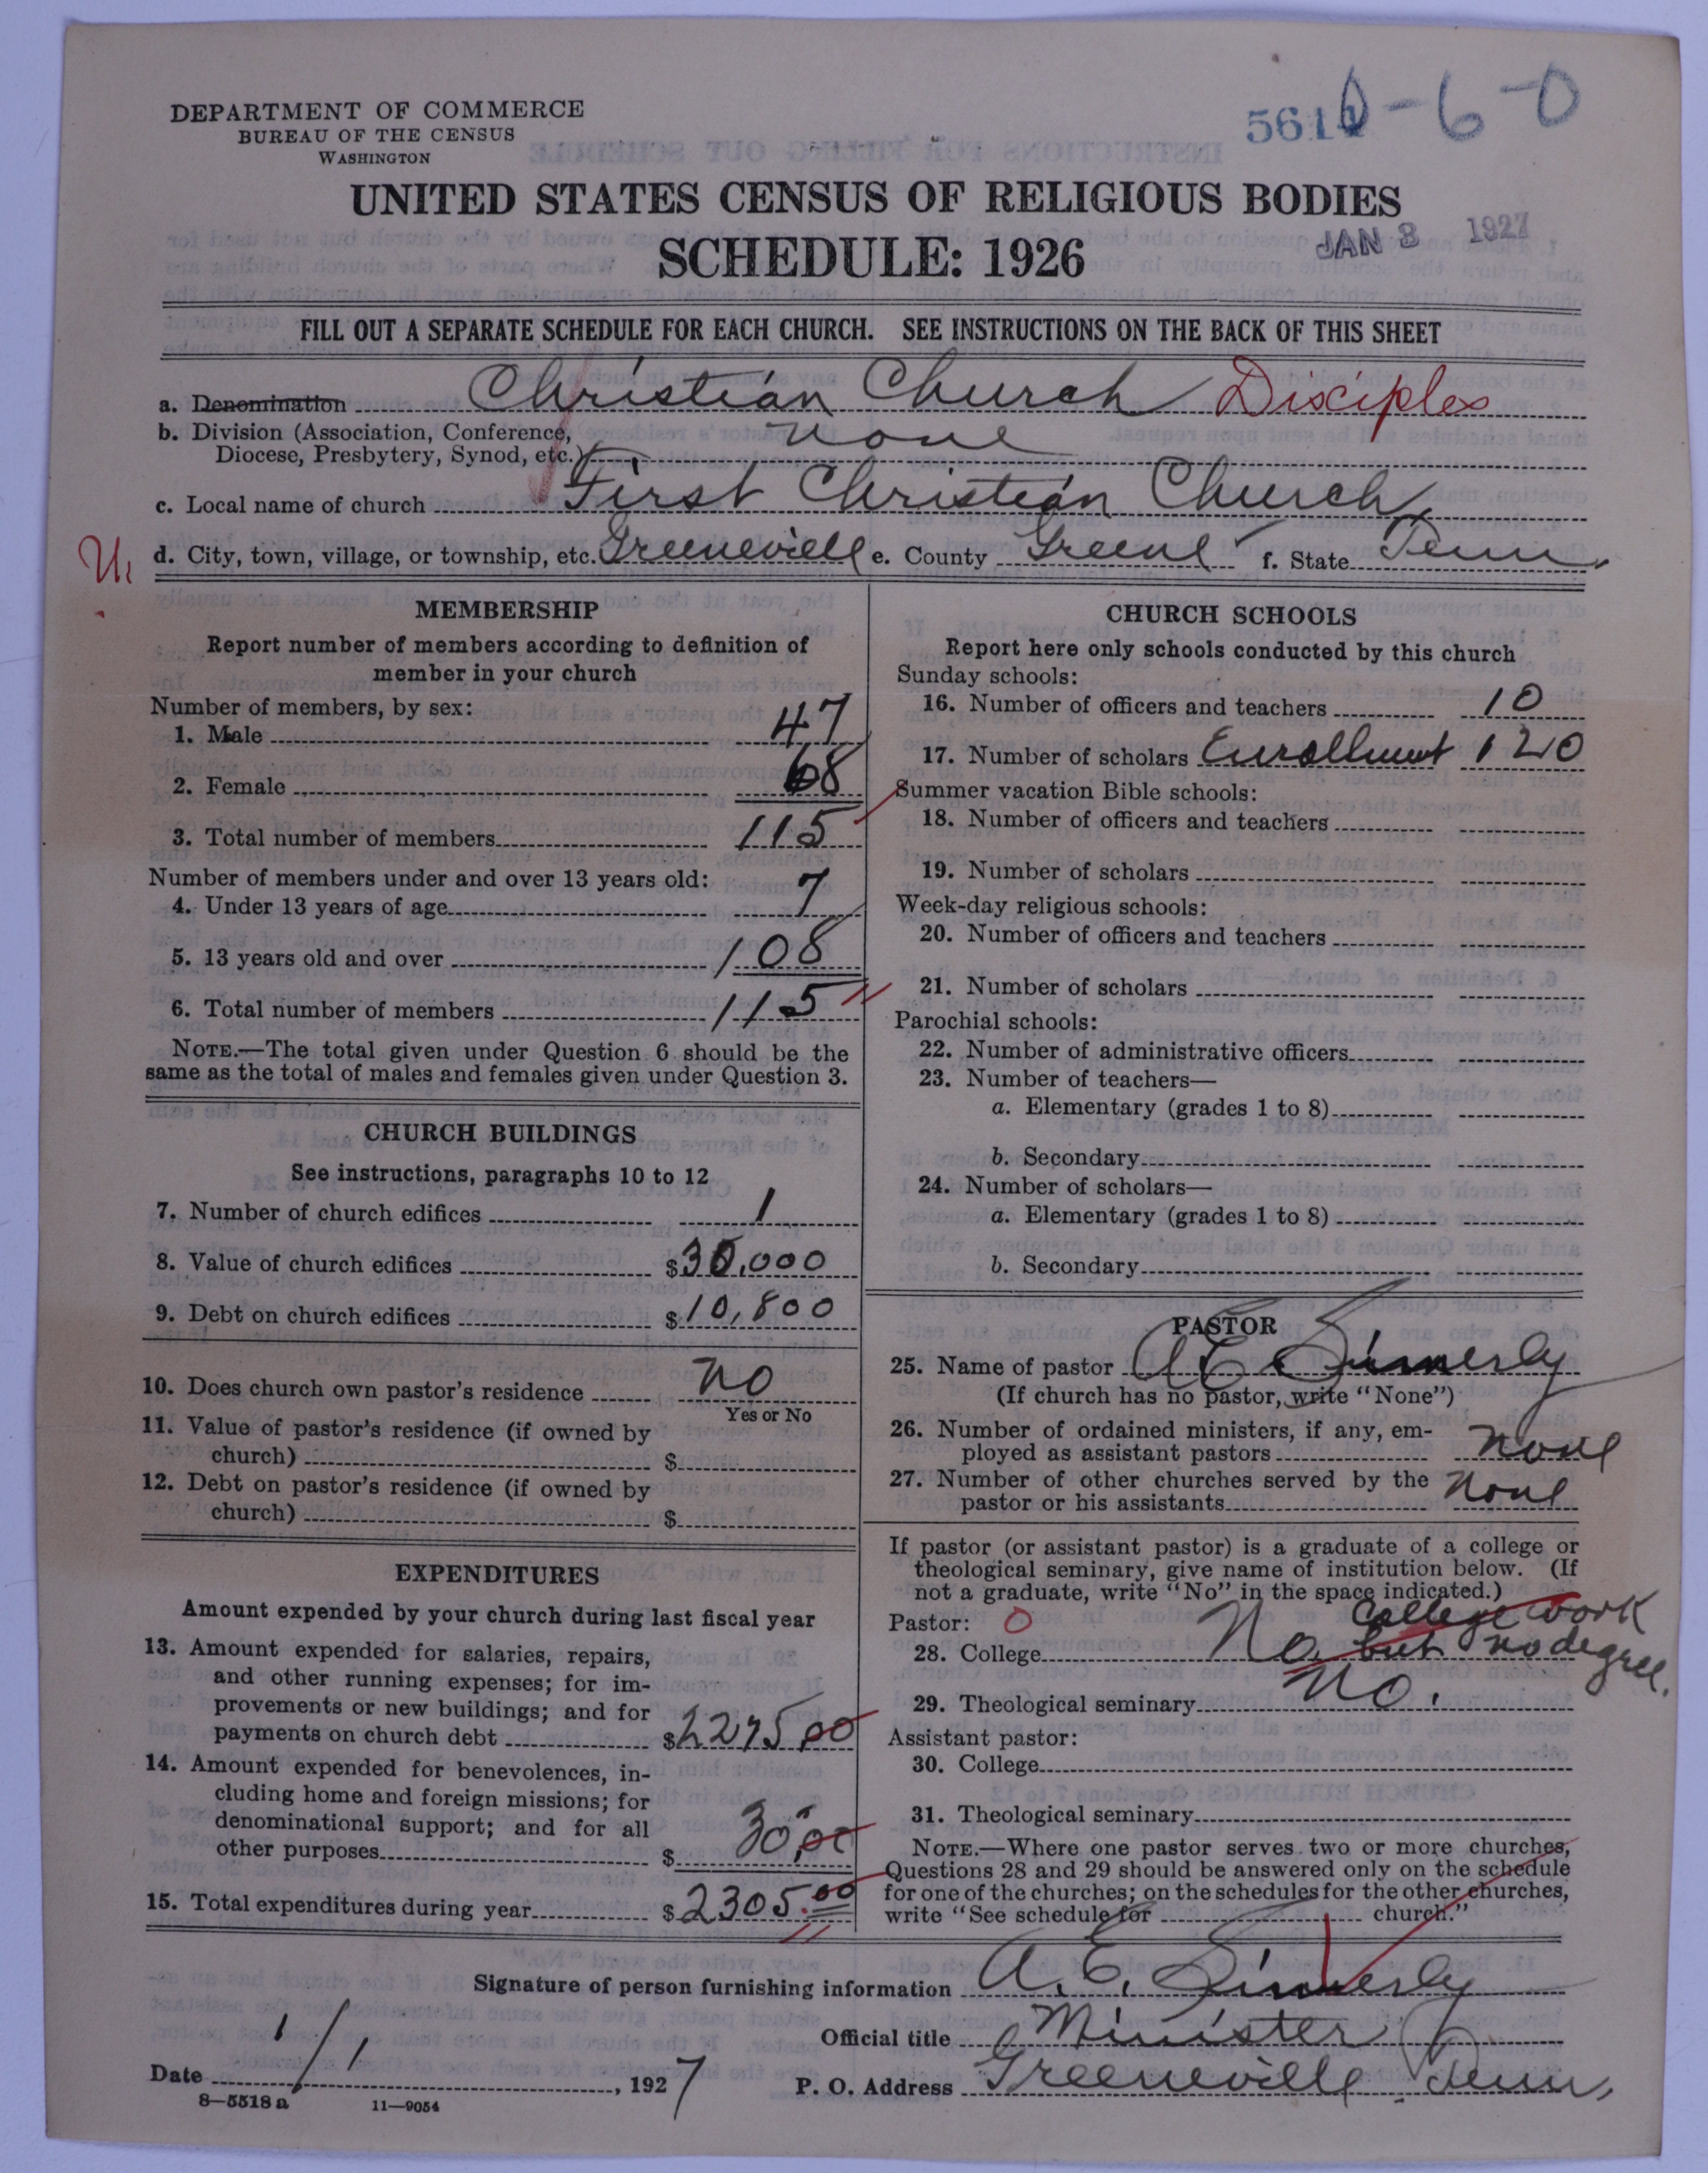 DEPARTMENT OF COMMERCE
BUREAU OF THE CENSUS
WASHINGTON
561 0-6-0
UNITED STATES CENSUS OF RELIGIOUS BODIES
SCHEDULE: 1926
JAN 3 1927
FILL OUT A SEPARATE SCHEDULE FOR EACH CHURCH. SEE INSTRUCTIONS ON THE BACK OF THIS SHEET
a. Denomination Christian Church Disciples
b. Division (Association, Conference, Diocese, Presbytery, Synod, etc.) None
c. Local name of church First Christian Church
d. City, town, village, or township, etc. Greeneville e. County Greene f. State Tenn.
MEMBERSHIP
Report number of members according to definition of
member in your church
Number of members, by sex:
1. Male 47
2. Female 68
3. Total number of members 115
Number of members under and over 13 years old:
4. Under 13 years of age 7
5. 13 years old and over 108
6. Total number of members 115
NOTE.—The total given under Question 6 should be the
same as the total of males and females given under Question 3.
CHURCH BUILDINGS
See instructions, paragraphs 10 to 12
7. Number of church edifices 1
8. Value of church edifices $30,000
9. Debt on church edifices $10,800
10. Does church own pastor's residence No
Yes or No
11. Value of pastor's residence (if owned by
church) $
12. Debt on pastor's residence (if owned by
church) $
EXPENDITURES
Amount expended by your church during last fiscal year
13. Amount expended for salaries, repairs,
and other running expenses; for im-
provements or new buildings; and for
payments on church debt $2275.00
14. Amount expended for benevolences, in-
cluding home and foreign missions; for
denominational support; and for all
other purposes $ 30.00
15. Total expenditures during year $2305.00
CHURCH SCHOOLS
Report here only schools conducted by this church
Sunday schools:
16. Number of officers and teachers 10
17. Number of scholars Enrollment 120
Summer vacation Bible schools:
18. Number of officers and teachers
19. Number of scholars
Week-day religious schools:
20. Number of officers and teachers
21. Number of scholars
Parochial schools:
22. Number of administrative officers
23. Number of teachers—
a. Elementary (grades 1 to 8)
b. Secondary
24. Number of scholars—
a. Elementary (grades 1 to 8)
b. Secondary
PASTOR
25. Name of pastor A E Simerly
(If church has no pastor, write "None")
26. Number of ordained ministers, if any, em-
ployed as assistant pastors None
27. Number of other churches served by the
pastor or his assistants None
If pastor (or assistant pastor) is a graduate of a college or
theological seminary, give name of institution below. (If
not a graduate, write "No" in the space indicated.)
Pastor: 0 college work
28. College No, but no degree.
29. Theological seminary No.
Assistant pastor:
30. College
31. Theological seminary
NOTE.—Where one pastor serves two or more churches,
Questions 28 and 29 should be answered only on the schedule
for one of the churches; on the schedules for the other churches,
write "See schedule for church."
Signature of person furnishing information A. E. Simerly
Official title Minister
Date 1/1, 1927
P. O. Address Greeneville, Tenn.
8—5518 a 11—9054